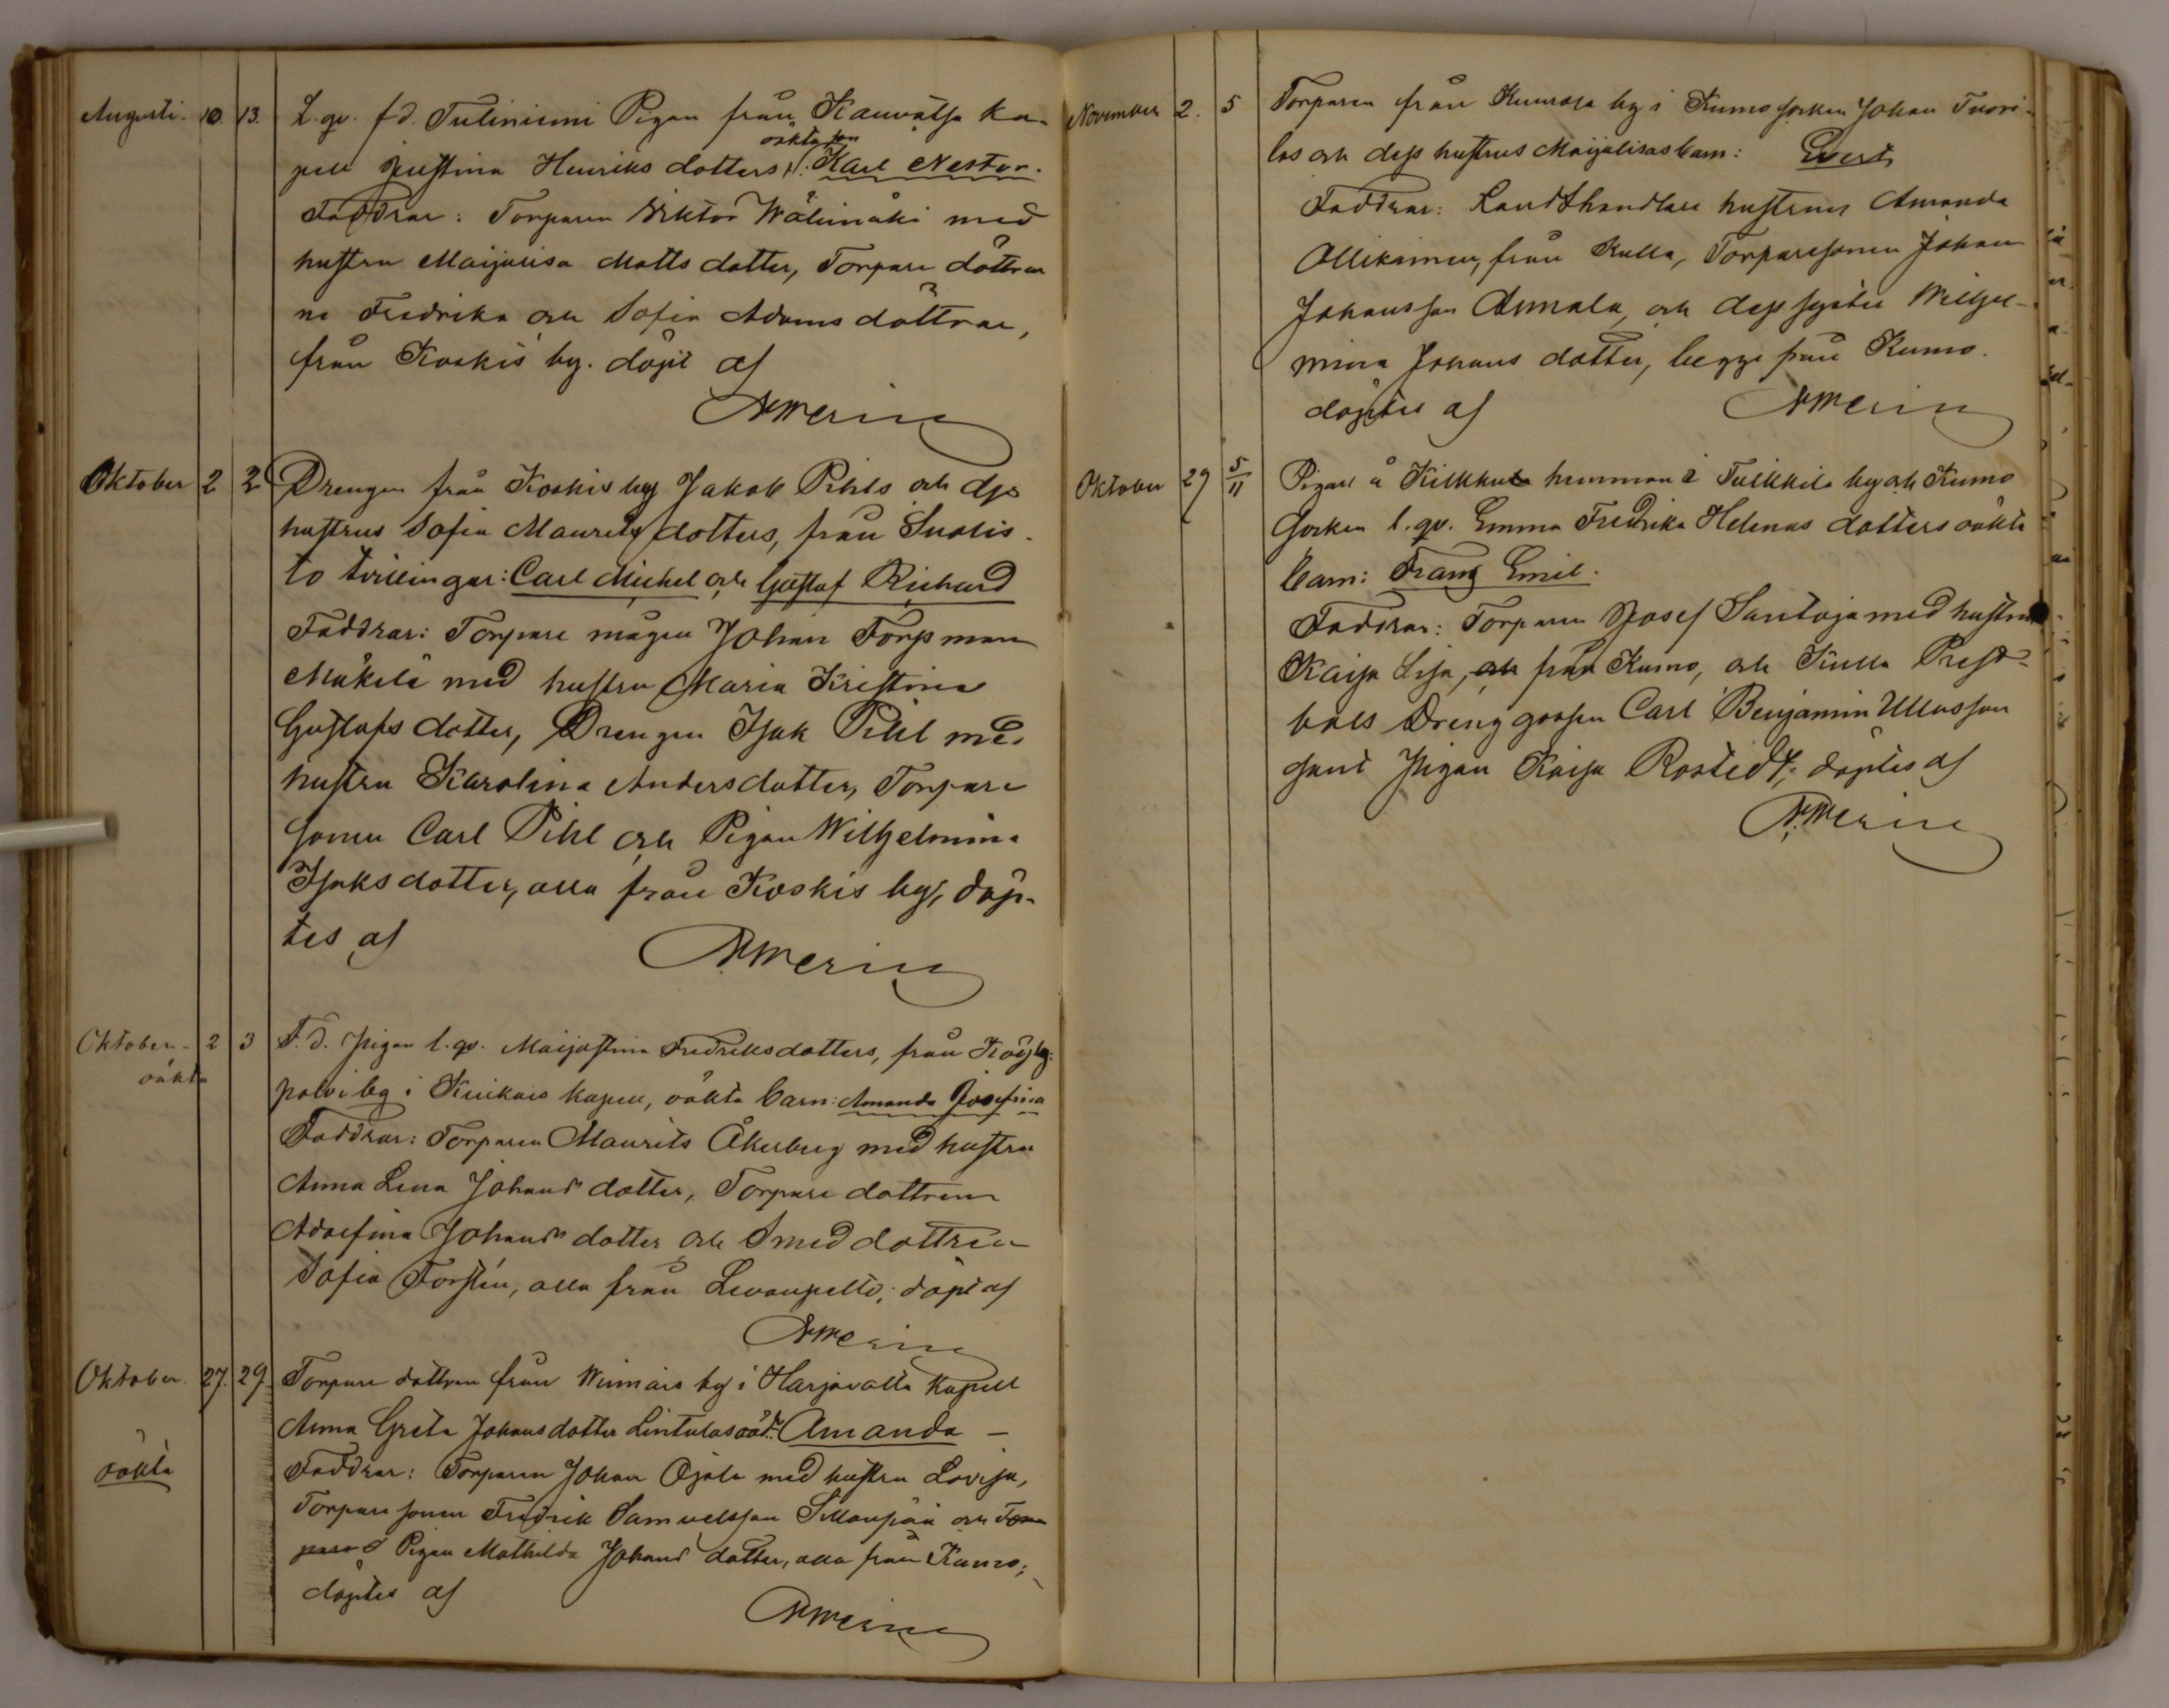 Augusti. 10. 13. L. qv. f d. Tuliniemi Pigan från Kauvatsa ka-
oäkta son
pell Justina Henriks dotters: Karl Nestor.
Faddrar: Torparen Viktor Wälimäki med
hustru Maijalisa Matts dotter, Torpare döttrar
na Fredrika och Sofia Adams döttrar,
från Koskis by. döpt af
Oktober 2 2 Drengen från Koskis by Jakob Pihls och dess
hustrus Sofia Maurits dotters, från Suolis-
to tvillingar: Carl Mickel och Gustaf Richard
Faddrar: Torpare mågen Johan Forsman
Mäkelä med hustru Maria Kristina
Gustafs dotter, Drengen Isak Pihl med
hustru Karolina Andersdotter, Torpare
sonen Carl Pihl och Pigan Wilhelmina
Isaksdotter, alla från Koskis by, döp-
tes af
Oktober 2 3 F. d. pigan l. qv. Maijastina Fredriksdotters, från
oäkta
polvi by i Kiukais kapell, oäkta barn: Amanda Josefina
Faddrar: Torparen Maurits Åkerberg med hustru
Anna Lena Johans dotter, Torpare dottren
Adolfina Johans dotter och Smed dottren
Sofia Forstén, alla från Levanpelto; döpt af
Oktober. 27. 29. Torpare dottren från Winnais by i Harjavalta Kapell
Anna Greta Johansdotter Lintulas oäd. Amanda -
oäkta
Faddrar: Torparen Johan Ojala med hustru Lovisa,
Torpare sonen Fredrik Samuelsson Sillanpää och Tor
pare d Pigan Mathilda Johans dotter, alla från Kumo;
döptes af
November 2. 5 Torparen från by i Kumo socken Johan Tuori-
las och dess hustrus Maijalisas barn: Evert
Faddrar: Landthandlare hustrun Amanda
Ollikainen, från Kulla, Torparesonen Johan
Johansson Annala, och dess syster Wilhel-
mina Johans dotter, begge från Kumo.
döptes af
Oktober 29 5/11 Pigans å hemman i Tulkkila by och Kumo
Socken l. qv. Emma Fredrika Helenas dotters oäkta
barn: Frans Emil.
Faddrar: Torparen Josef Santoja med hustru
Kaisa Lisa, och från Kumo, och Kulla Prest-
bols Dreng gossen Carl Benjamin
samt Pigan Kaisa Rostedt; döptes af